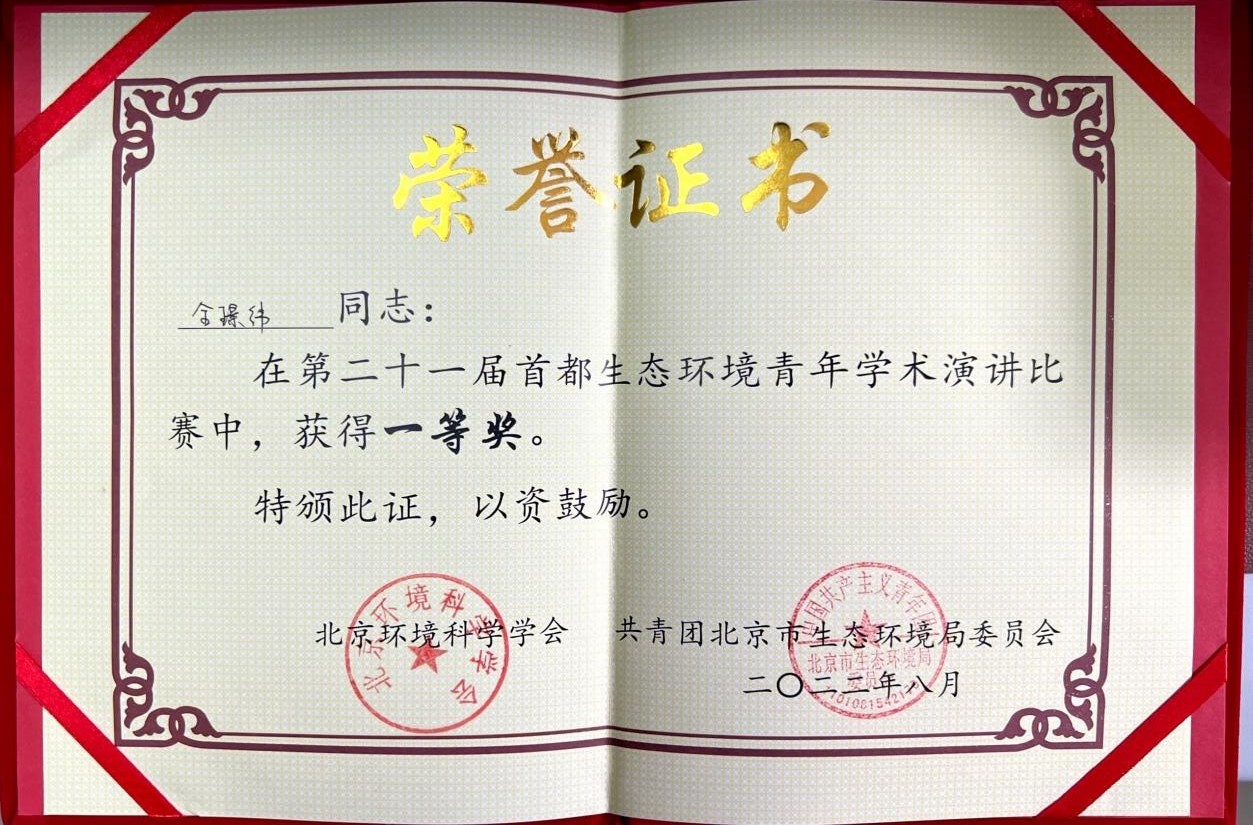 荣誉证书
全璟纬 同志：
在第二十一届首都生态环境青年学术演讲比
赛中，获得一等奖。
特颁此证，以资鼓励。
北京环境科学学会 共青团北京市生态环境局委员会
二〇二二年八月
北京环境科学学会
中国共产主义青年团
北京市生态环境局
委员会